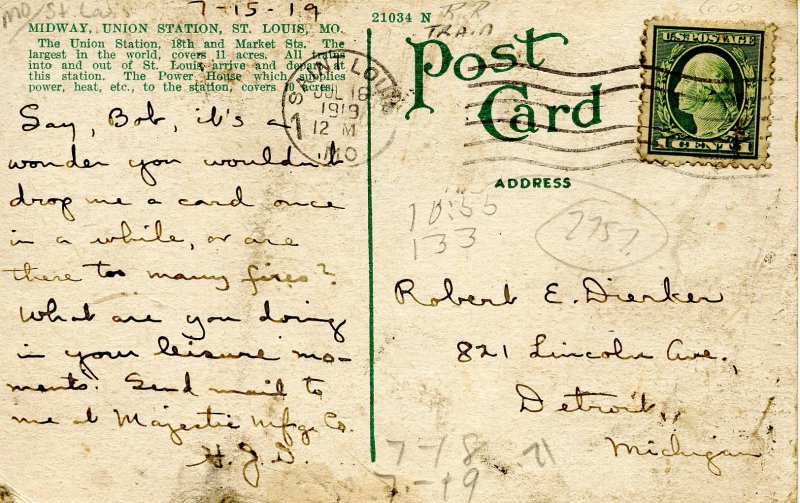 MO/St Louis
7-15-19
MIDWAY, UNION STATION, ST. LOUIS, MO.
The Union Station, 18th and Market Sts. The
largest in the world, covers 11 acres. All trains
into and out of St. Louis arrive and depart at
this station. The Power House which supplies
power, heat, etc., to the station, covers 10 acres.
Say, Bob, it's a
wonder you wouldn't
drop me a card once
in a while, or are
there too many fires?
What are you doing
in your leisure mo-
ments? Send mail to
me at Majestic Mfg. Co.
H.J.D.
21034 N
RR
TRAIN
Post
Card
SAINT LOUIS
1
JUL 18
1919
12 M
MO
U.S. POSTAGE
1 CENT 1
ADDRESS
10:55
133
Robert E. Dierker
821 Lincoln Ave.,
Detroit,
Michigan
7-18
7-19